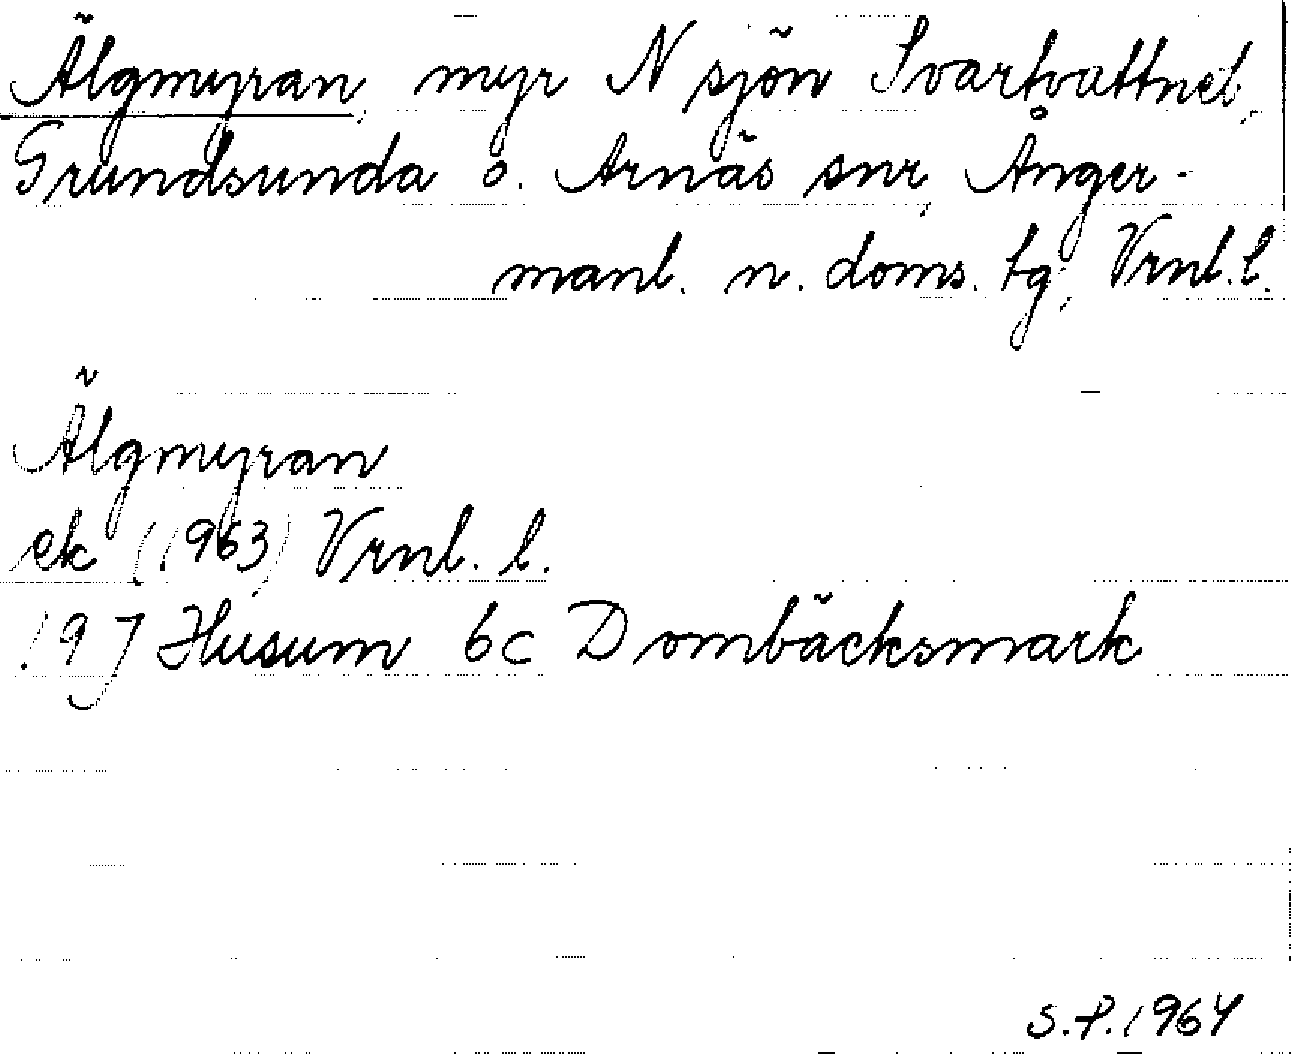 Älgmyran, myr N sjön Svartvattnet,
Grundsunda o. Arnäs snr, Ånger-
manl. n. doms. tg, Vrnl. l.
Älgmyran
ek (1963) Vrnl. l.
19J Husum 6c Dombäcksmark
S.P. 1964